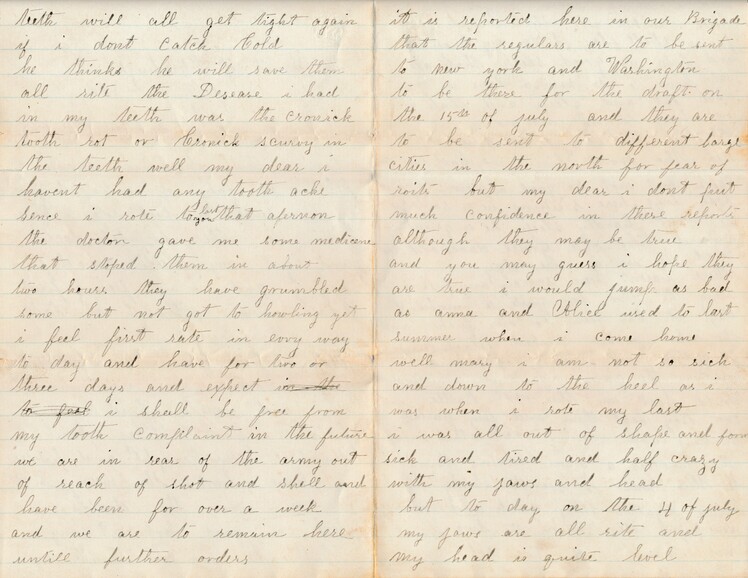 teeth will all get tight again
if i dont Catch Cold
he thinks he will save them
all rite the Desease i had
in my teeth was the Cronick
tooth rot or Cronick scurvy in
the teeth well my dear i
havent had any tooth ache
sence i rote to you last that afernon
the doctor gave me some medicene
that stoped them in about
two hours they have grumbled
some but not got to howling yet
i feel first rate in evry way
to day and have for two or
three days and expect in the
to feel i shall be free from
my tooth Complaint in the future
we are in rear of the army out
of reach of shot and shell and
have been for over a week
and we are to remain here
untill further orders
it is reported here in our Brigade
that the regulars are to be sent
to new york and Washington
to be there for the draft on
the 15th of july and they are
to be sent to different large
cities in the north for fear of
roits but my dear i dont put
much confidence in these reports
although they may be true
and you may guess i hope they
are true i would jump as bad
as anna and Alice used to last
summer when i come home
well mary i am not so sick
and down to the heel as i
was when i rote my last
i was all out of shape and
sick and tired and half crazy
with my jaws and head
but to day on the 4 of july
my jaws are all rite and
my head is quite level